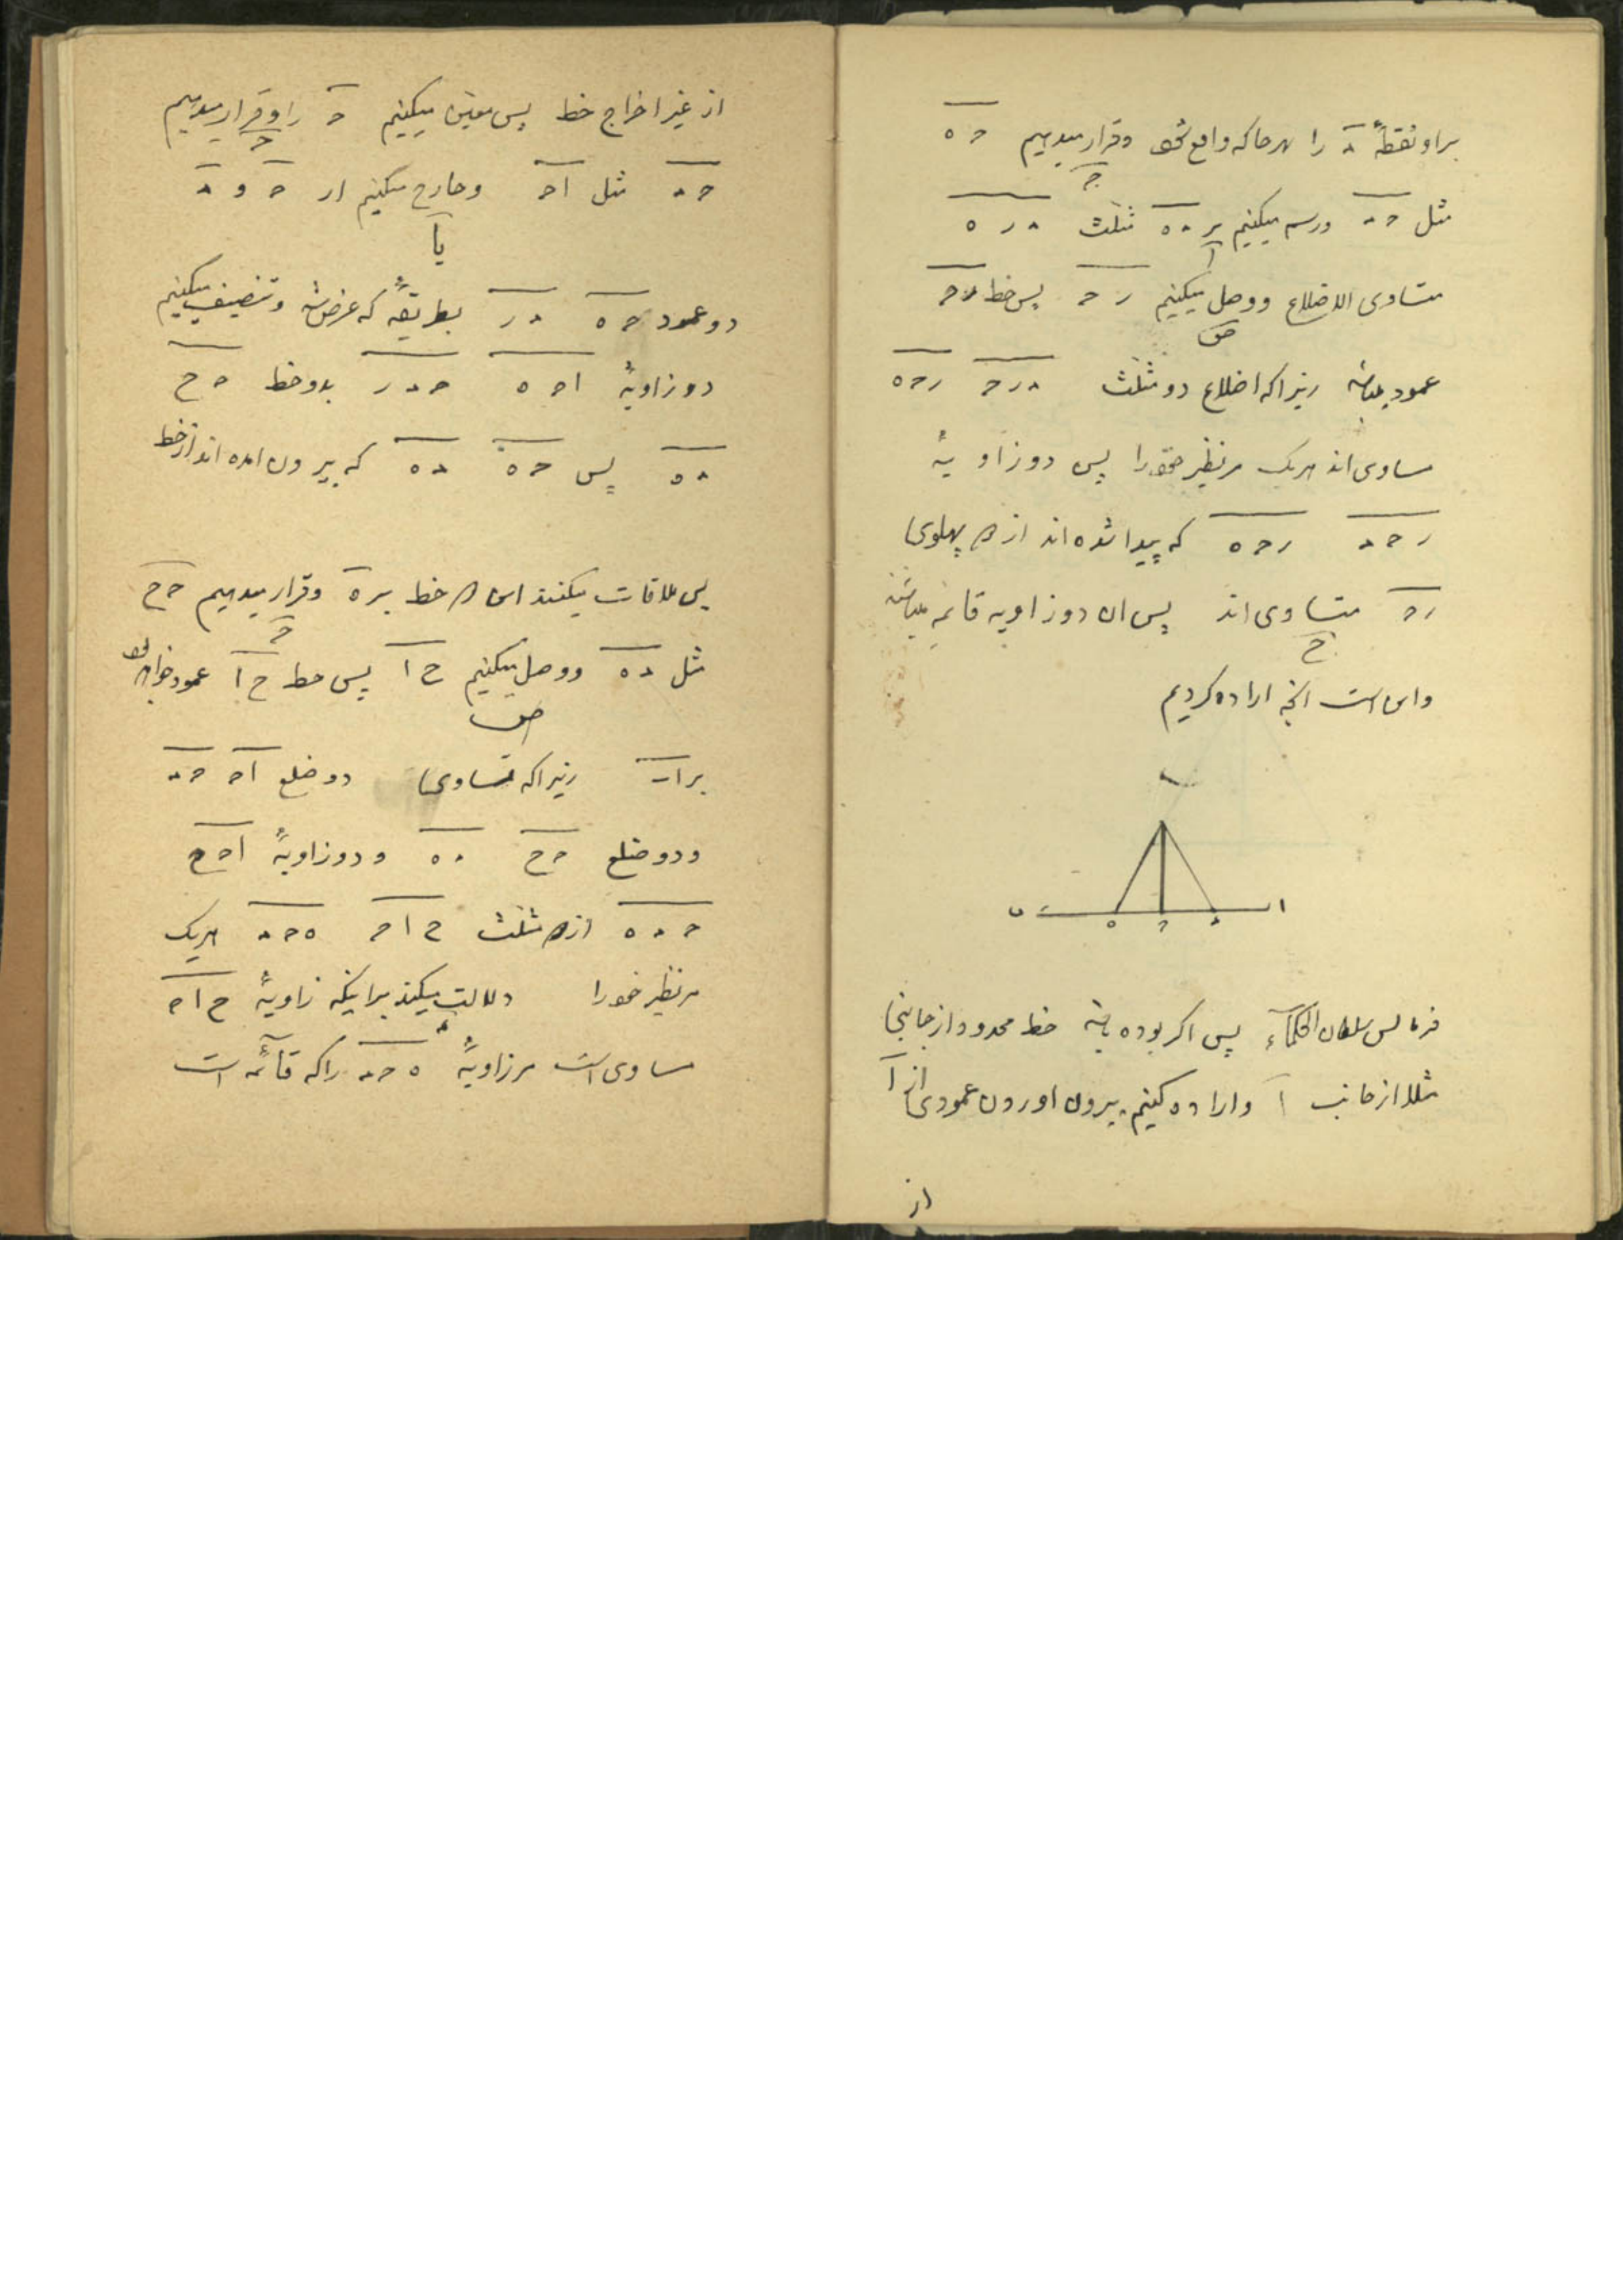 براو نقطهٔ د را هرجا که واقع شود و قرار میدهیم حه
ج
مثل حد و رسم میکنیم بر ده مثلث دره
ا
متساوی الاضلاع و وصل میکنیم رح پس خط رح
عمود باشد زیرا که اضلاع دو مثلث درح رحه
مساوی اند هریک مر نظیر خود را پس دو زاویهٔ
رحد رحه که پیدا شده اند از دو پهلوی
رح متساوی اند پس ان دو زاویه قائمه میباشند
ح
و این است انچه اراده کردیم
ر
ب ه ح د ا
فرمالس سلطان الحکمآء پس اکر بوده باشد خط محدود از جانبی
مثلا از جانب ا و اراده کنیم بیرون اوردن عمودی از ا
از
از غیر اخراج خط پس معین میکنیم ح را و قرار میدهیم
ج
حد مثل اح و خارج میکنیم از ح و د
یا
دو عمود حه در بطریقهٔ که عرض شد و تنصیف میکنیم
دو زاویهٔ احه حدر بدو خط حح
ده پس حه ده که بیرون امده اند از خط
پس ملاقات میکنند این دو خط بر ه و قرار میدهیم حح
ج
مثل ده و وصل میکنیم حا پس خط حا عمود خواهد بود
بر اب زیرا که تساوی دو ضلع اح حد
و دو ضلع حح ده و دو زاویهٔ احح
حده از دو مثلث حاح هحد هریک
مر نظیر خود را دلالت میکند بر اینکه زاویهٔ حاح
مساوی است مر زاویهٔ هحد را که قائمه است